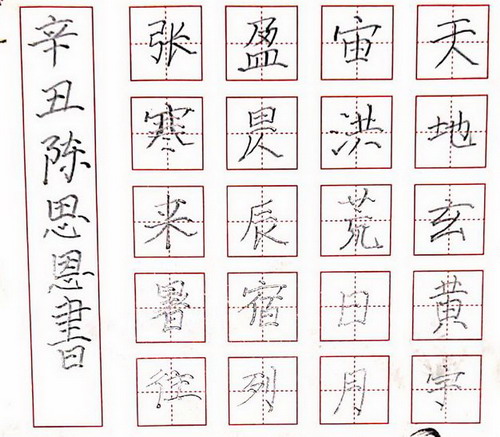 天地玄黄宇
宙洪荒日月
盈昃辰宿列
张寒来暑往
辛丑陈思恩書